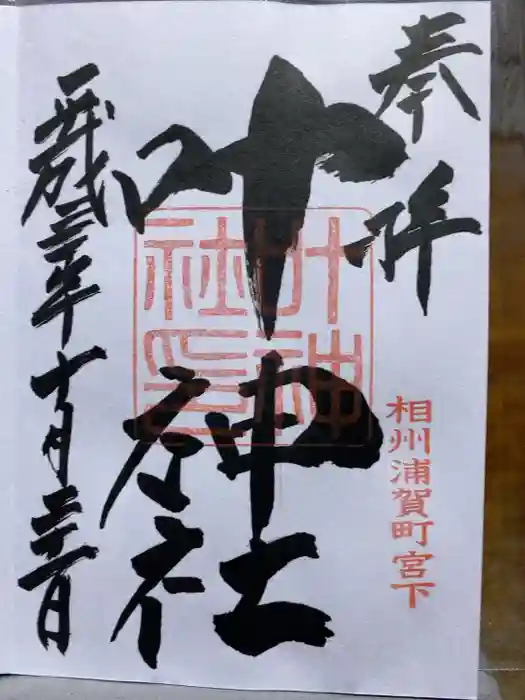 奉拝
叶神社
叶神社印
相州浦賀町宮下
平成三十年十月二十一日